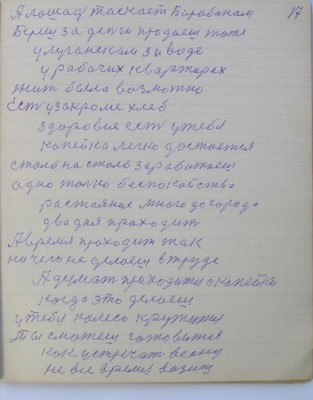 А лошад таскает Барабанам 17
Береш за денги продаеш тоже
у луганскам заводе
у рабочих квартирах
жит была возможно
Ест у закроме хлеб
здоровие ест у тебя
копейка легко достается
столь на столь заработаеш
одно только беспокойство
растаяние много до города
два дня проходит
А время проходит так
не чего не делаеш в труде
А думат приходится о копейки
когда это делаеш
у тебя колесо кружится
Ти сможеш готовится
как устречат весну
не все время возиш